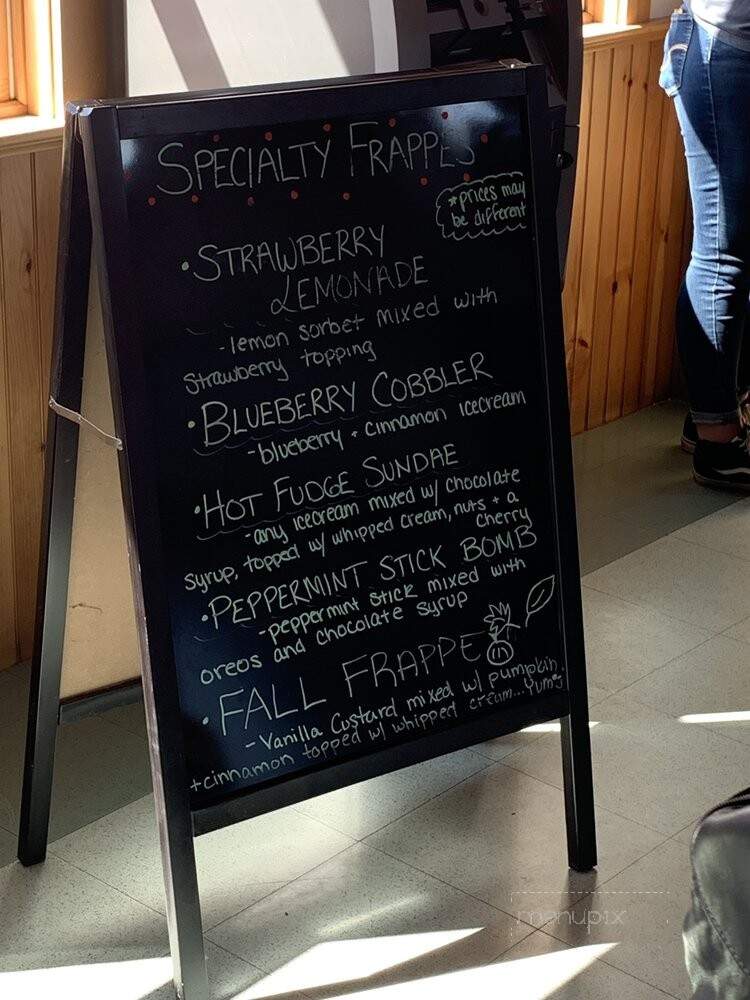 SPECIALTY FRAPPES
*prices may
be different
•STRAWBERRY
LEMONADE
-lemon sorbet mixed with
strawberry topping
•BLUEBERRY COBBLER
-blueberry + cinnamon icecream
•HOT FUDGE SUNDAE
-any icecream mixed w/ chocolate
syrup, topped w/ whipped cream, nuts + a
cherry
•PEPPERMINT STICK BOMB
-peppermint stick mixed with
oreos and chocolate syrup
•FALL FRAPPE
-Vanilla Custard mixed w/ pumpkin
+cinnamon topped w/ whipped cream... Yum!
menupix